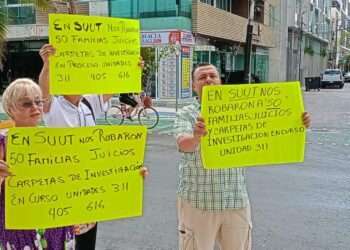 EN SUUT NOS ROBARON
50 FAMILIAS JUICIOS
CARPETAS DE INVESTIGACIÓN
EN PROCESO UNIDADES
311 405 616
EN SUUT NOS ROBARON
50 FAMILIAS JUICIOS
CARPETAS DE INVESTIGACIÓN
EN CURSO UNIDADES 311
405 616
EN SUUT NOS
ROBARON A 50
FAMILIAS, JUICIOS
Y CARPETAS DE
INVESTIGACIÓN EN CURSO
UNIDAD 311
FARMACIA